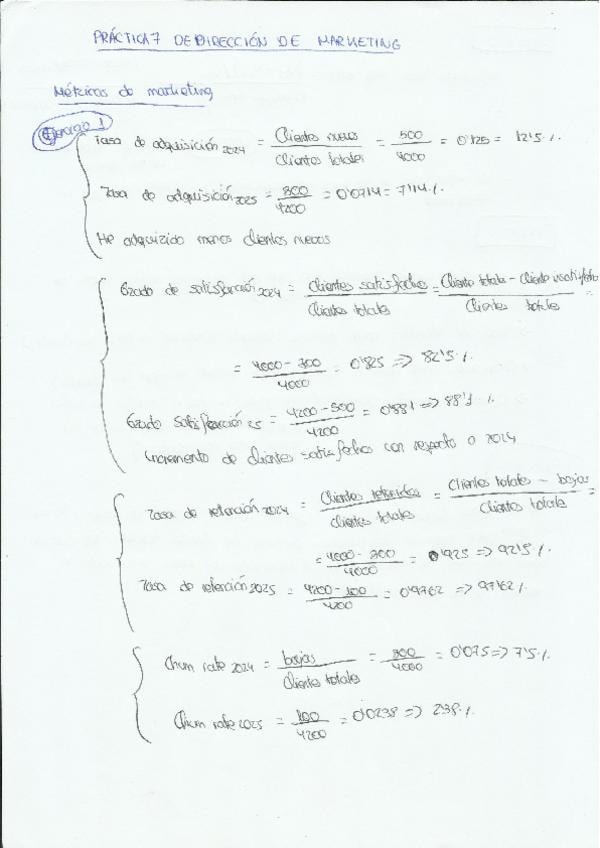 PRÁCTICA 7 DE DIRECCIÓN DE MARKETING
Métricas de marketing
Ejercicio 1
Tasa de adquisición 2024 = Clientes nuevos / Clientes totales = 500 / 4000 = 0'125 = 12'5 %.
Tasa de adquisición 2025 = 300 / 4200 = 0'0714 = 7'14 %.
He adquizido menos clientes nuevos
Grado de satisfacción 2024 = Clientes satisfechos / Clientes totales = Cliente totale - Cliente insatisfecho / Clientes totales =
= 4000 - 700 / 4000 = 0'825 => 82'5 %.
Grado satisfacción 25 = 4200 - 500 / 4200 = 0'881 => 88'1 %
Incremento de clientes satisfechos con respecto a 2024
Tasa de retención 2024 = Clientes retenidos / Clientes totales = Clientes totales - bajas / Clientes totale =
= 4000 - 300 / 4000 = 0'925 => 92'5 %.
Tasa de retención 2025 = 4200 - 100 / 4200 = 0'9762 => 97'62 %.
Churn rate 2024 = bajas / Clientes totales = 300 / 4000 = 0'075 => 7'5 %.
Churn rate 2025 = 100 / 4200 = 0'0238 => 2'38 %.